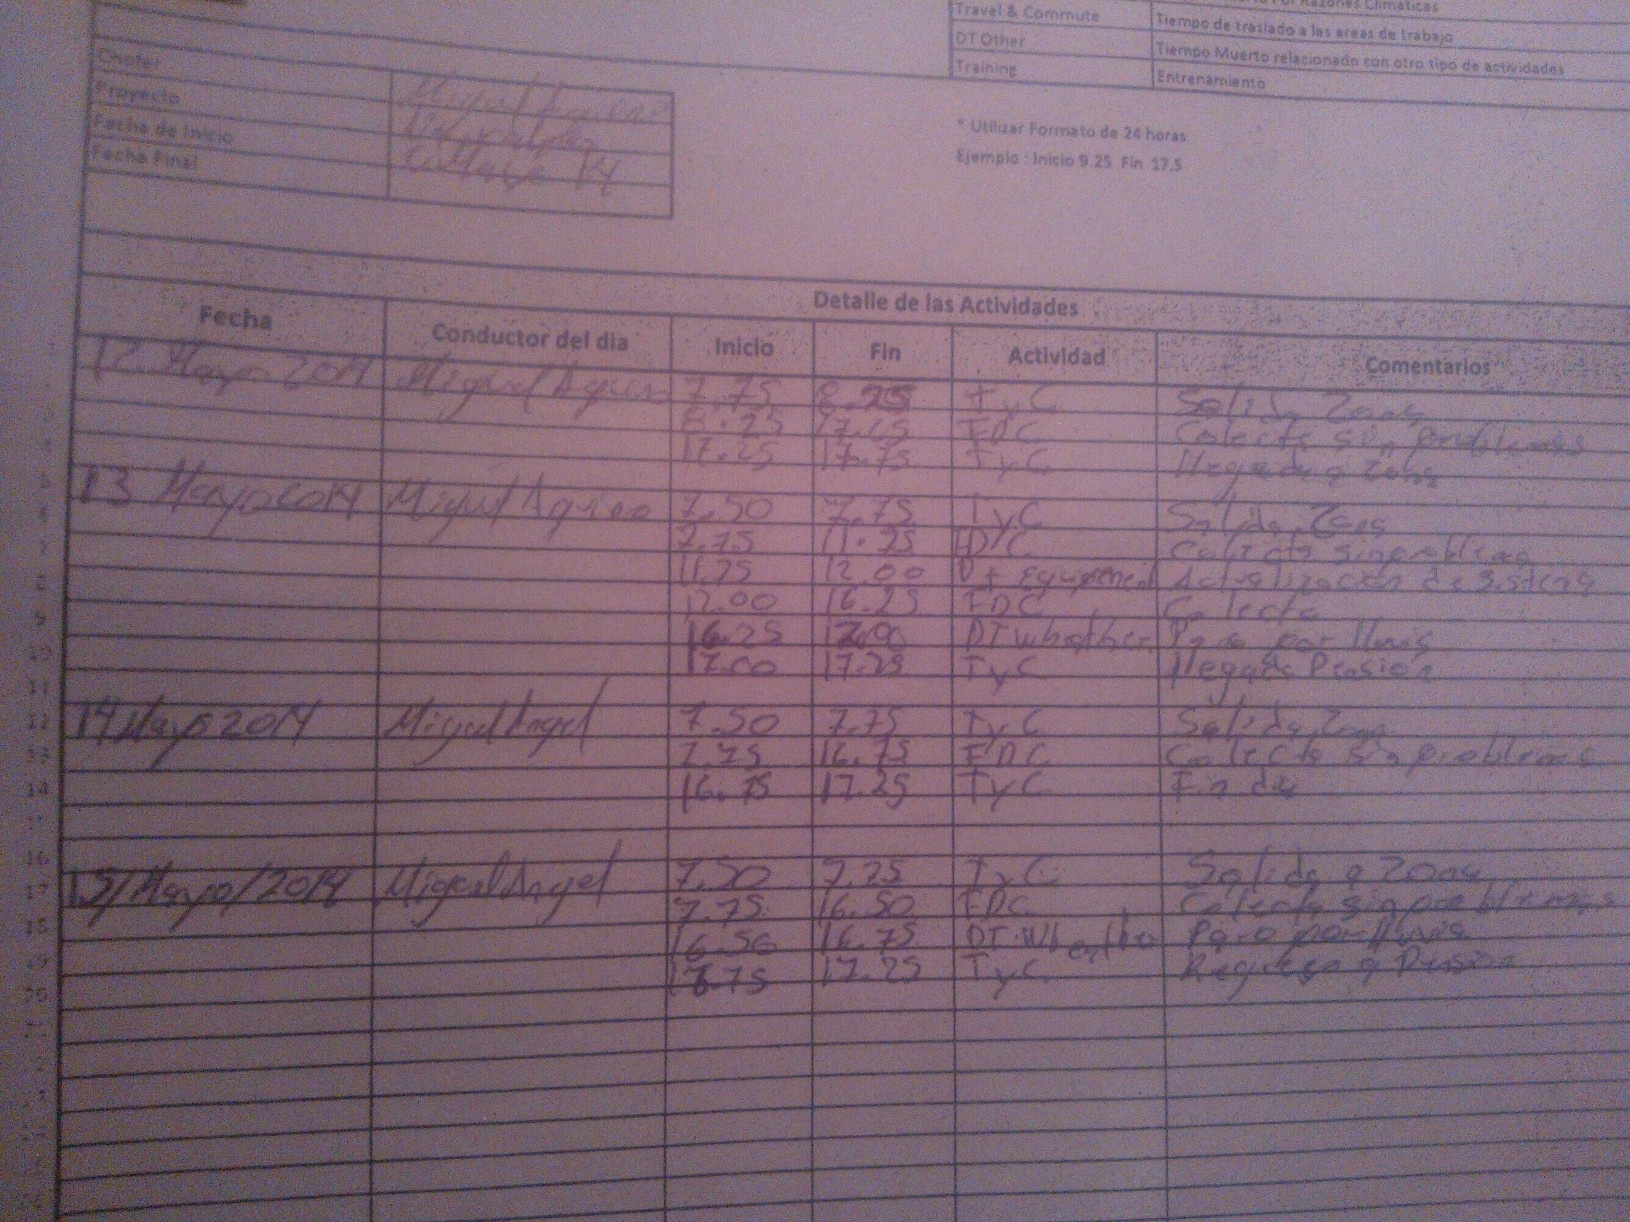 Razones Climaticas
Travel & Commute Tiempo de traslado a las areas de trabajo
DT Other Tiempo Muerto relacionado con otro tipo de actividades
Training Entrenamiento
Chofer Miguel
Proyecto
Fecha de Inicio
Fecha Final
* Utilizar Formato de 24 horas
Ejemplo : Inicio 9.25 Fin 17.5
Detalle de las Actividades
Fecha Conductor del dia Inicio Fin Actividad Comentarios
12 Mayo 2014 Miguel 7.75 8.25 TyC Salida Zona
8.25 17.25 FDC Colecta sin problemas
17.25 17.75 TyC llegada a Zona
13 Mayo 2014 Miguel 7.50 7.75 TyC Salida Zona
7.75 11.25 Colecta sin problemas
12.00 Actualizacion de sistema
12.00 16.25 FDC Colecta
16.25 17.00 DT Whather Paro por lluvia
17.00 17.25 TyC llegada Pension
14 Mayo 2014 Miguel Angel 7.50 7.75 TyC Salida Zona
7.75 16.75 FDC Colecta sin problemas
16.75 17.25 TyC Fin dia
15/Mayo/2014 Miguel Angel 7.50 TyC Salida a Zona
7.75 16.50 FDC Colecta sin problemas
16.50 16.75 DT Paro por lluvia
16.75 17.25 TyC Regreso a Pension